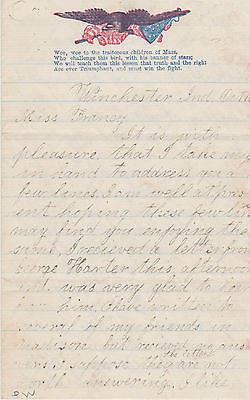 Woe, woe to the traitorous children of Mars,
Who challenge this bird, with his banner of stars;
We will teach them this lesson that truth and the right
Are ever Triumphant, and must win the fight.
Winchester Ind. Oct
Miss Francy
It is with
pleasure that I take my
in hand to address you a
few lines. I am well at pres
ent hoping these few lin
may find you enjoying the
same. I recieved a let from
George Harter this afternoon
and was very glad to hea
him, I have written to
several of my friends in
but recieved no answ
I suppose they are not
the letters
worth answering. I like
D W